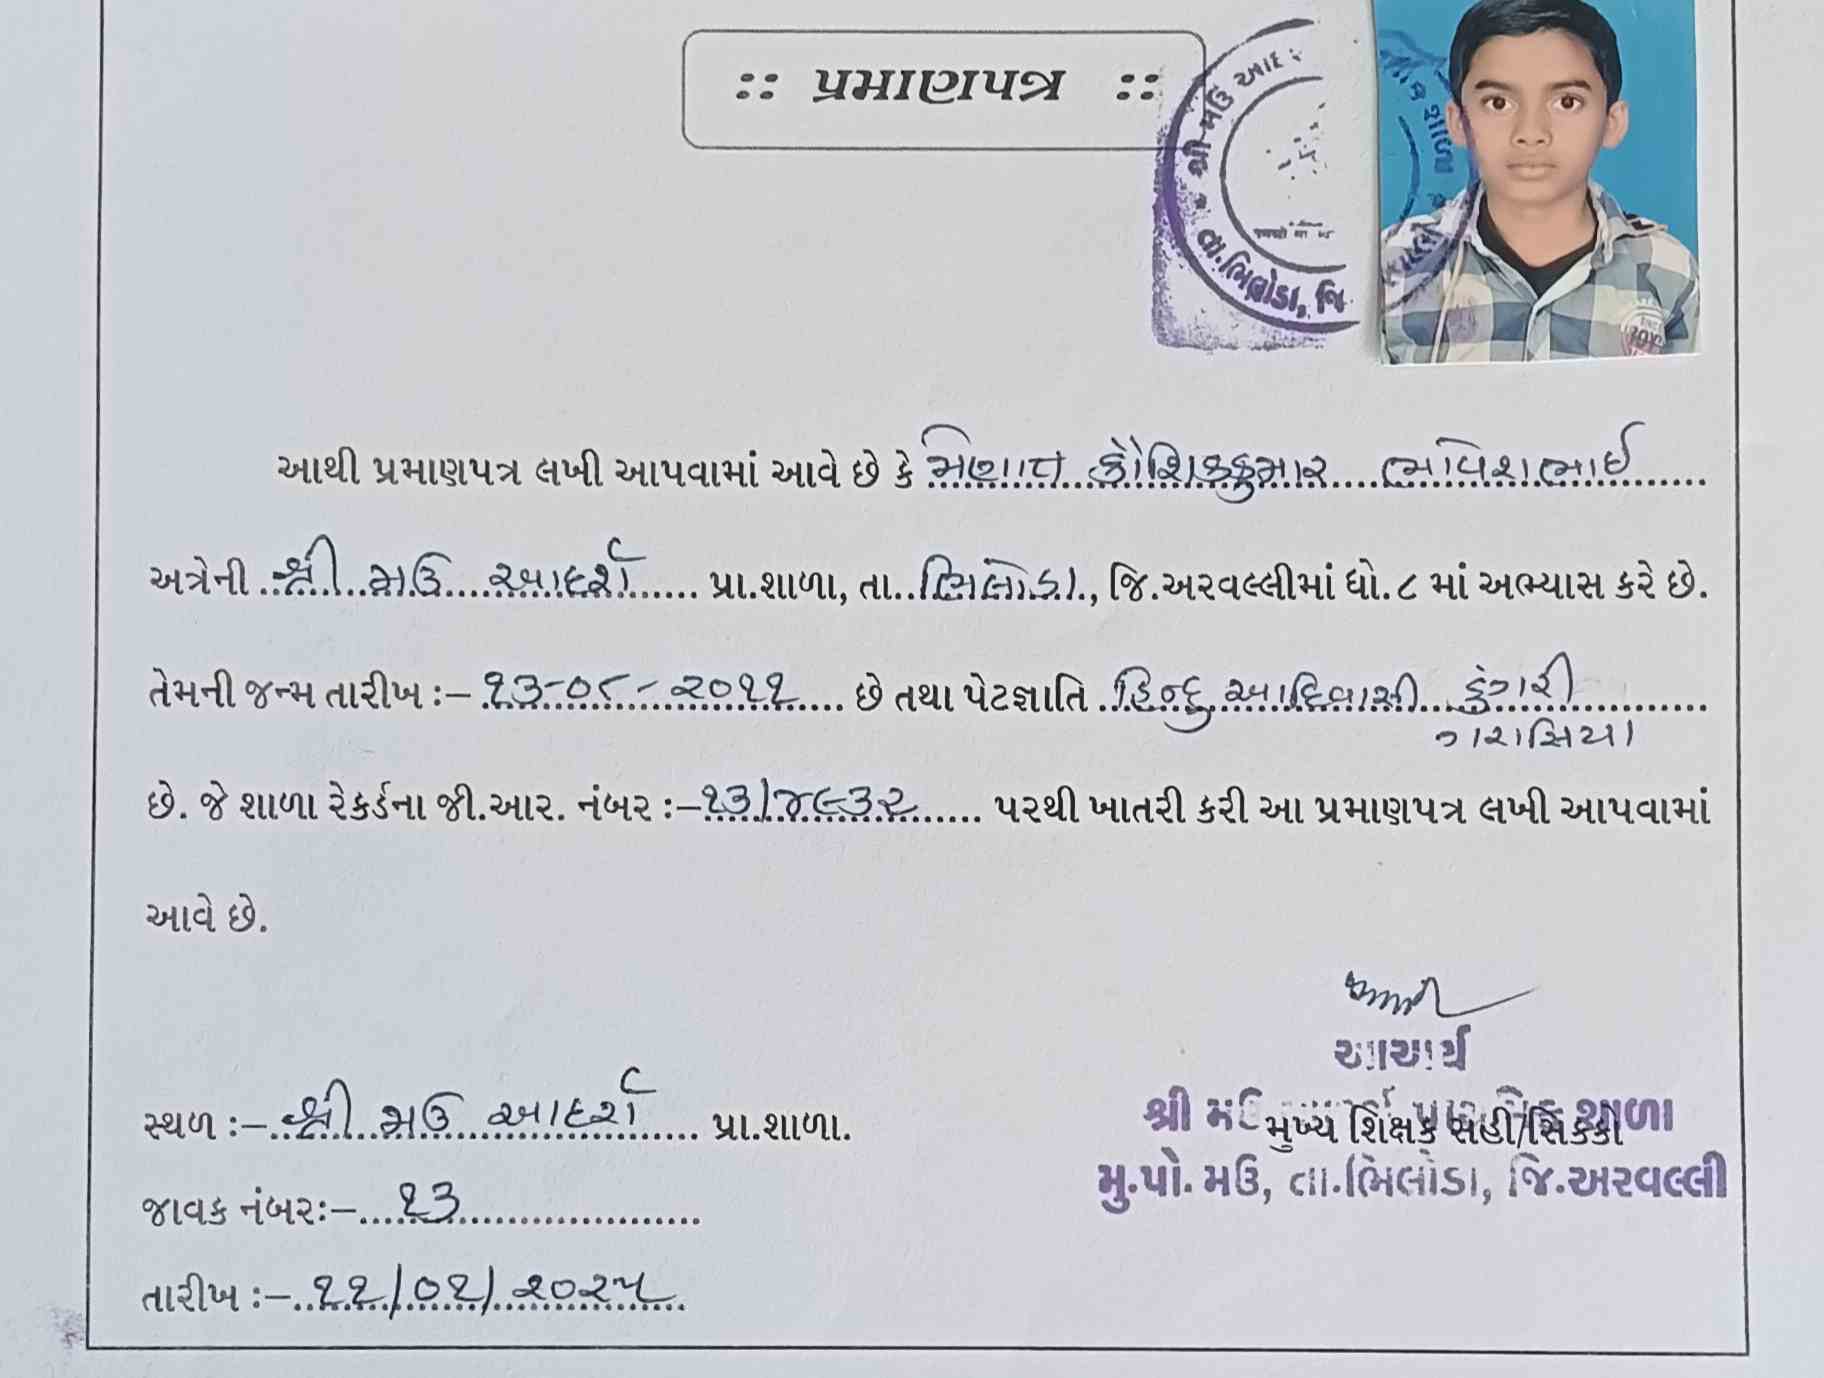 :: પ્રમાણપત્ર ::
શ્રી મઉ આદ
તા.ભિલોડા, જિ.
આથી પ્રમાણપત્ર લખી આપવામાં આવે છે કે મણાત કૌશિકકુમાર ભાવેશભાઈ
અત્રેની શ્રી મઉ આદર્શ પ્રા.શાળા, તા. ભિલોડા, જિ.અરવલ્લીમાં ધો. ૮ માં અભ્યાસ કરે છે.
તેમની જન્મ તારીખ :- ૧૩-૦૮-૨૦૧૧ છે તથા પેટાજ્ઞાતિ હિન્દુ આદિવાસી ડુંગરી
ગરાસિયા
છે. જે શાળા રેકર્ડના જી.આર. નંબર :- ૧૩/૪૯૩૨ પરથી ખાતરી કરી આ પ્રમાણપત્ર લખી આપવામાં
આવે છે.
આચાર્ય
સ્થળ :- શ્રી મઉ આદર્શ પ્રા.શાળા.
શ્રી મઉ શાળા
મુખ્ય શિક્ષક સહી/સિક્કો
મુ.પો. મઉ, તા.ભિલોડા, જિ.અરવલ્લી
જાવક નંબર:- ૧૩
તારીખ :- ૧૧/૦૧/૨૦૨૫